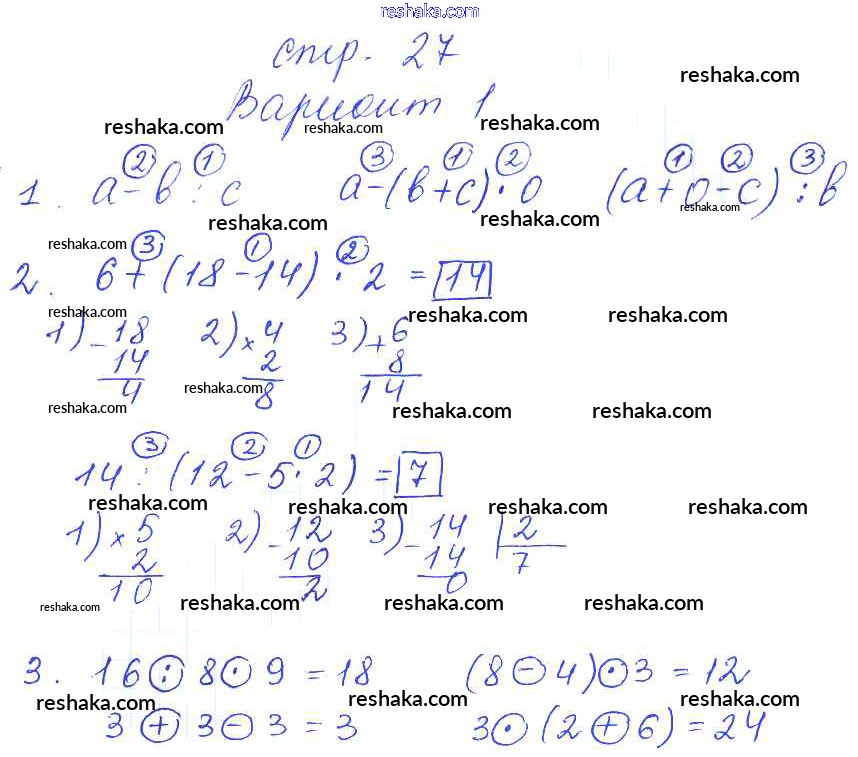 reshaka.com
стр. 27
reshaka.com
Вариант 1
reshaka.com reshaka.com reshaka.com
② ① ③ ① ② ① ② ③
1. a - b : c a - (b + c) · d (a + d - c) : b
reshaka.com reshaka.com reshaka.com
reshaka.com ③ ① ②
2. 6 + (18 - 14) · 2 = 14
reshaka.com reshaka.com reshaka.com
1) - 18 2) × 4 3) + 6
14 2 8
reshaka.com
4 8 14
reshaka.com reshaka.com reshaka.com
③ ② ①
14 : (12 - 5 · 2) = 7
reshaka.com reshaka.com reshaka.com reshaka.com
1) × 5 2) - 12 3) - 14 2
2 10 14 7
10 2 0
reshaka.com reshaka.com reshaka.com reshaka.com
3. 16 : 8 · 9 = 18 (8 - 4) · 3 = 12
reshaka.com reshaka.com reshaka.com
3 + 3 - 3 = 3 3 · (2 + 6) = 24